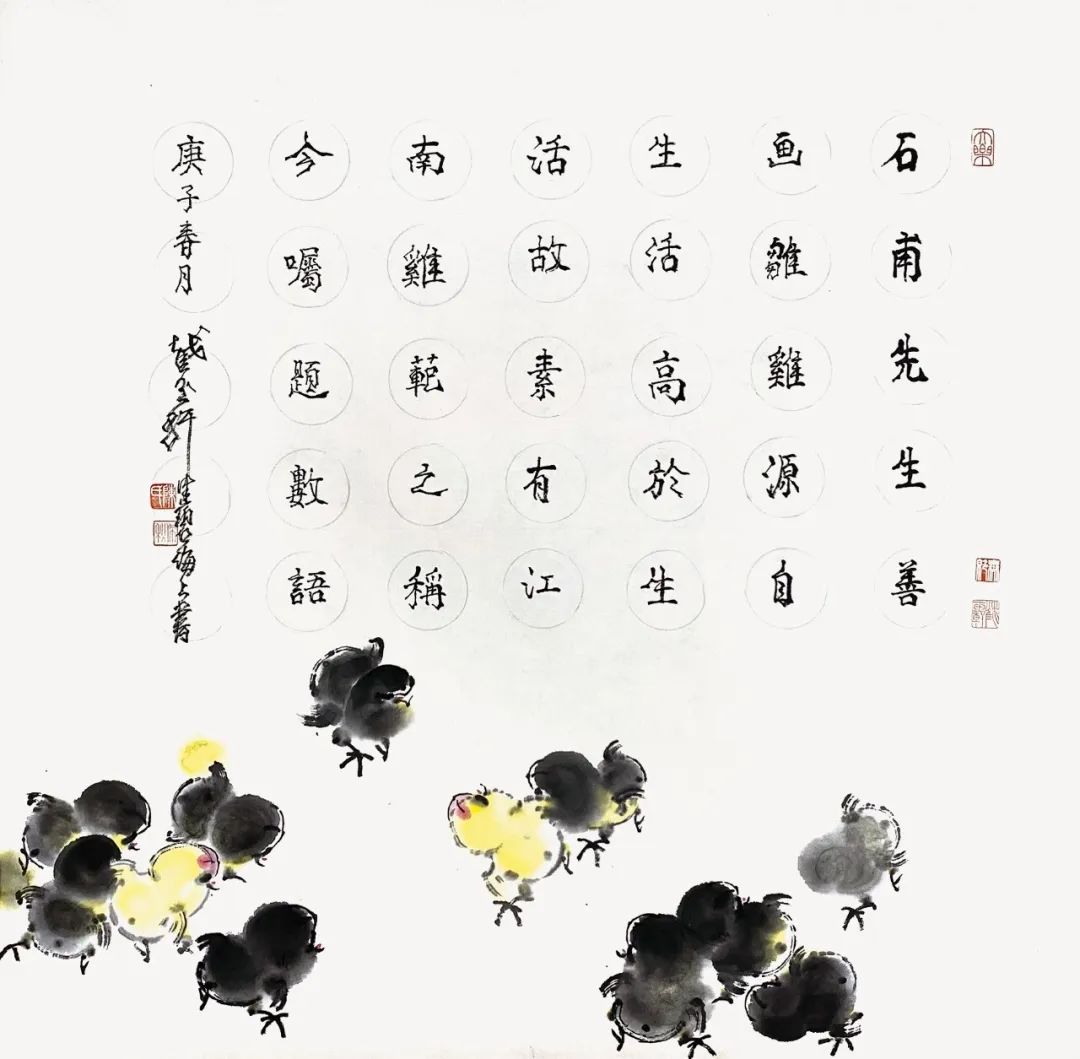 石甫先生善
画雛雞源自
生活高於生
活故素有江
南雞範之稱
今囑題數語
庚子春月
海上書